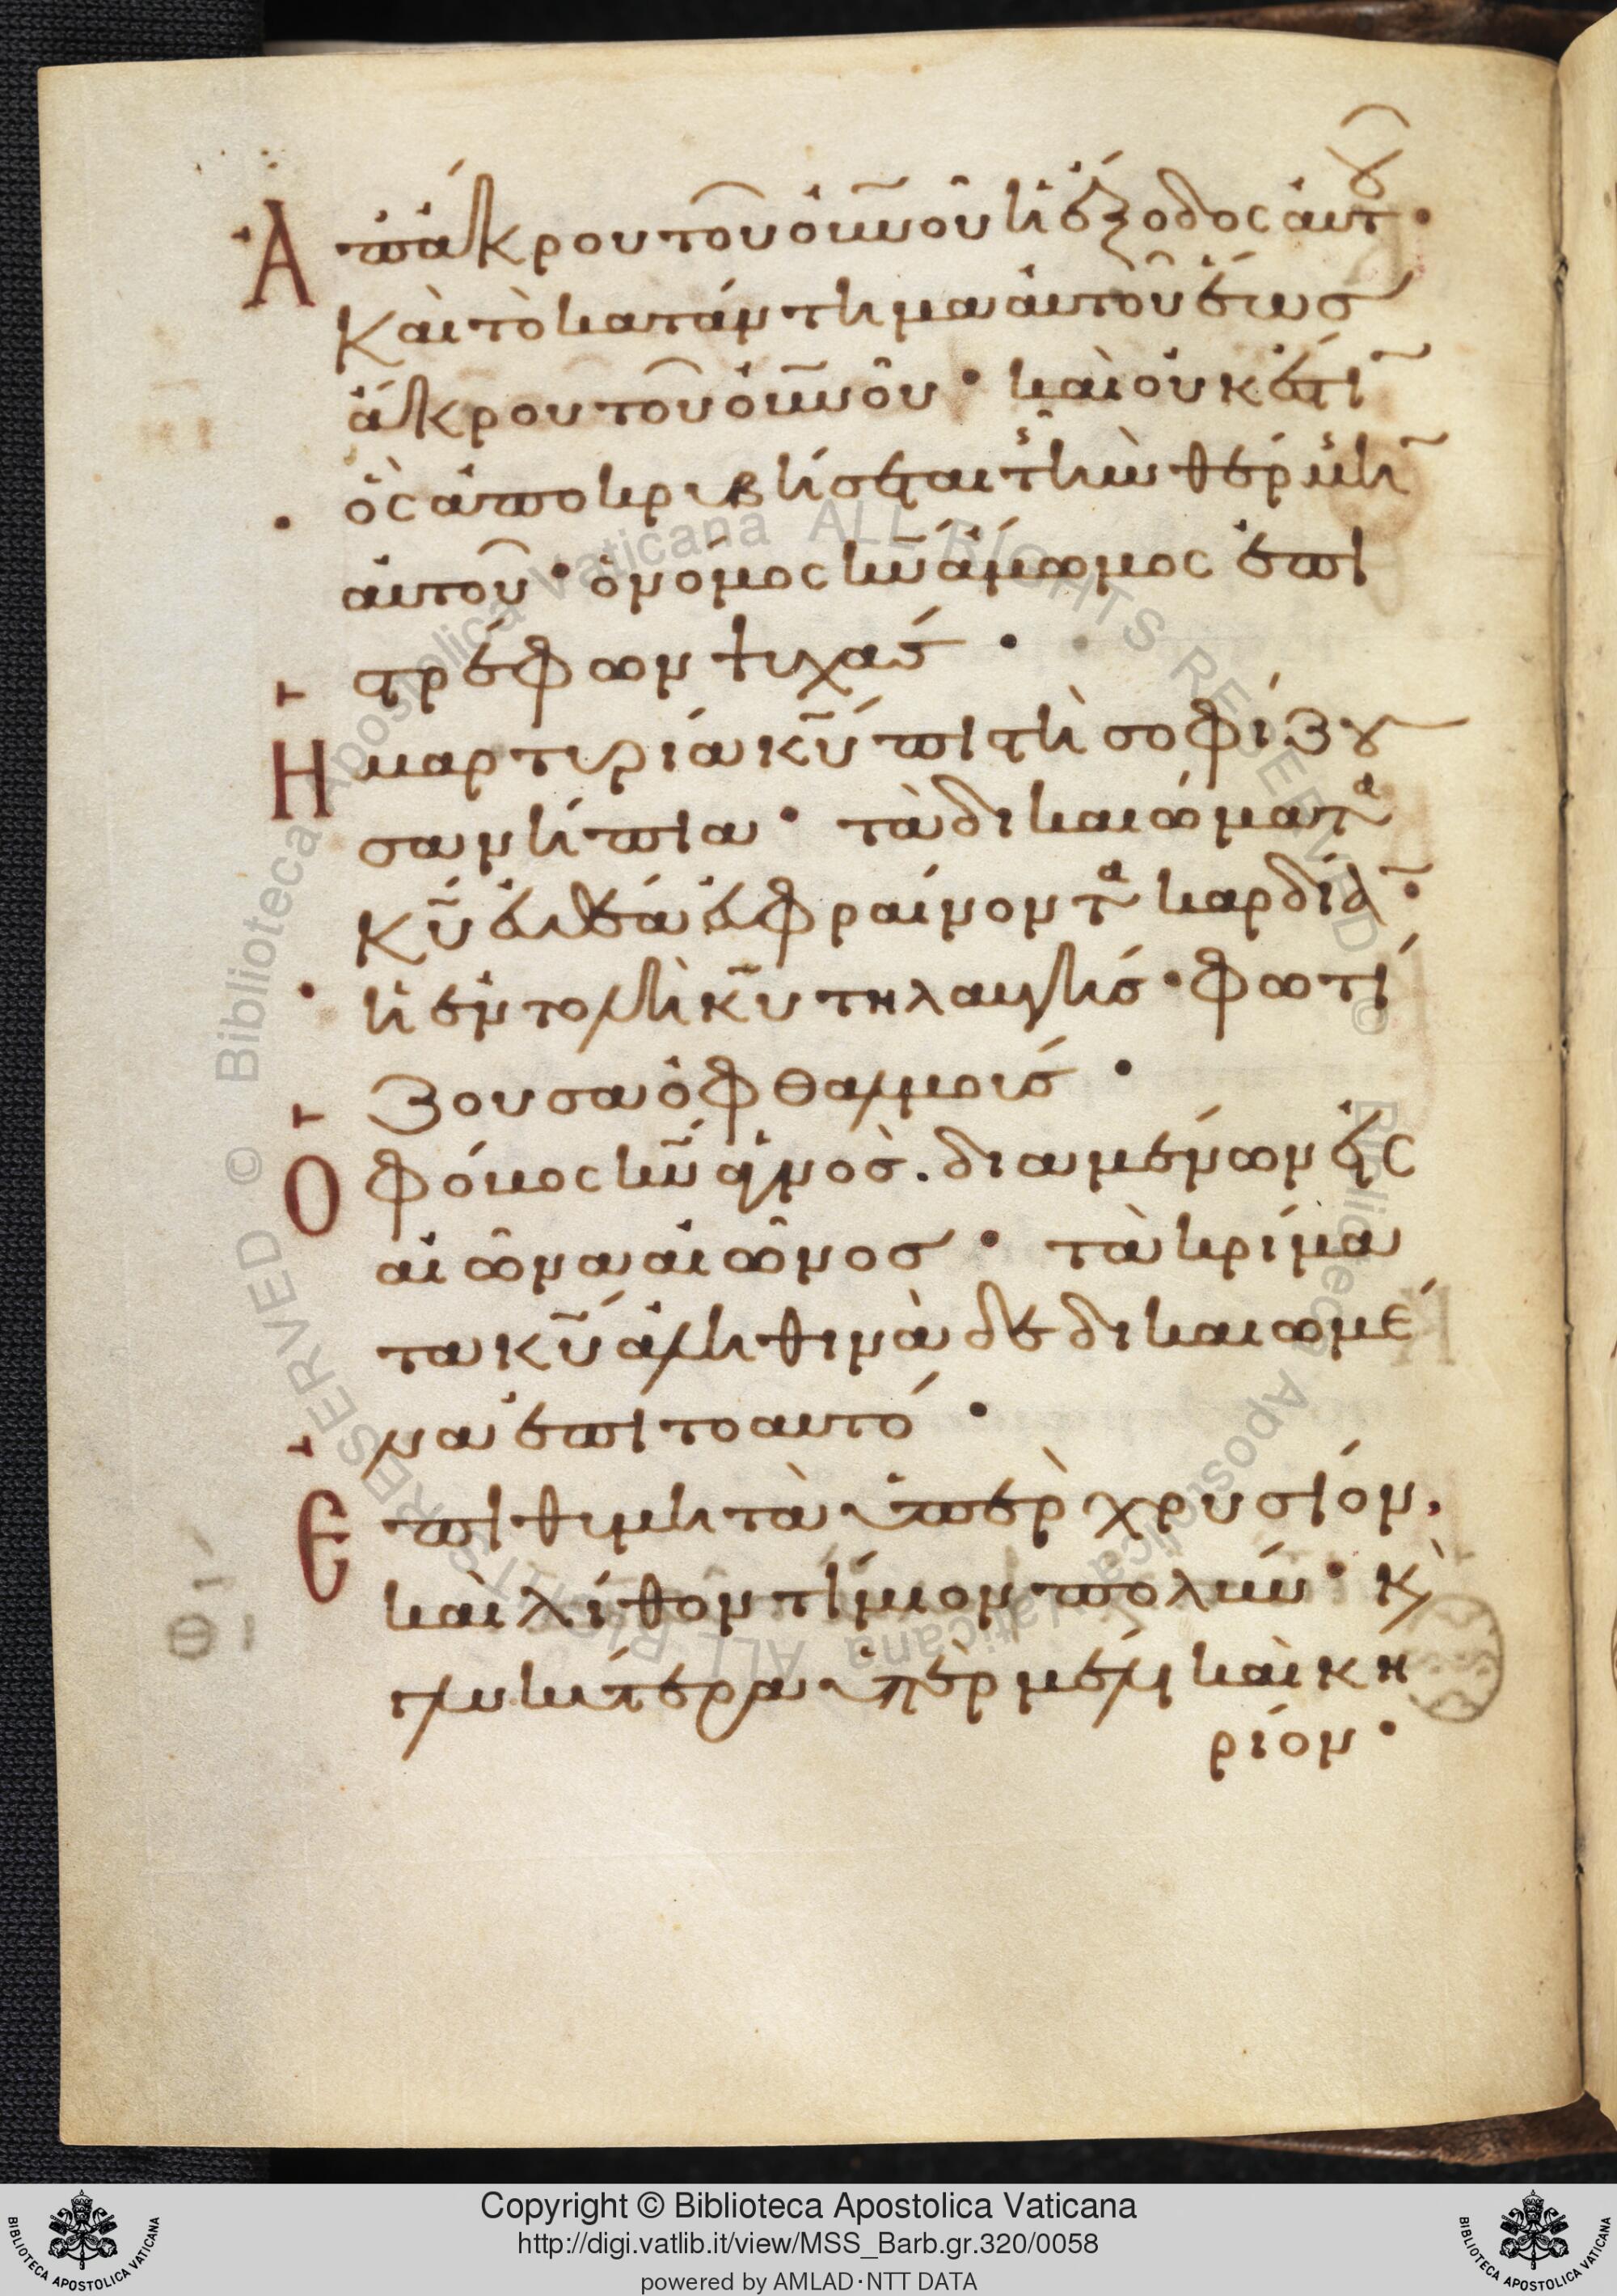 Ἀπ ἄκρου τοῦ οὐνοῦ ἡ ἔξοδος αὐτοῦ·
Καὶ τὸ κατάντημα αὐτοῦ ἕως
ἄκρου τοῦ οὐνοῦ· καὶ οὐκ ἔστι
ὃς ἀποκρυβήσεται τὴν θέρμη
αὐτοῦ· ὁ νόμος κυ ἄμωμος ἐπι
στρέφων ψυχάς·
Ἡ μαρτυρία κυ πιστὴ σοφίζου
σα νήπια· τὰ δικαιώματα
κυ εὐθέα εὐφραίνοντα καρδία·
ἡ ἐντολὴ κυ τηλαυγής· φωτί
ζουσα ὀφθαλμούς·
Ὁ φόβος κυ ἁγνὸς. διαμένων εἰς
αἰῶνα αἰῶνος· τὰ κρίμα
τα κυ ἀληθινὰ δεδικαιωμέ
να ἐπιτοαυτό·
Ἐπιθυμητὰ ὑπὲρ χρυσίον,
καὶ λίθον τίμιον πολύν· κ
γλυκύτερα ὑπὲρ μέλι καὶ κη
ρίον·
Copyright © Biblioteca Apostolica Vaticana
http://digi.vatlib.it/view/MSS_Barb.gr.320/0058
powered by AMLAD·NTT DATA